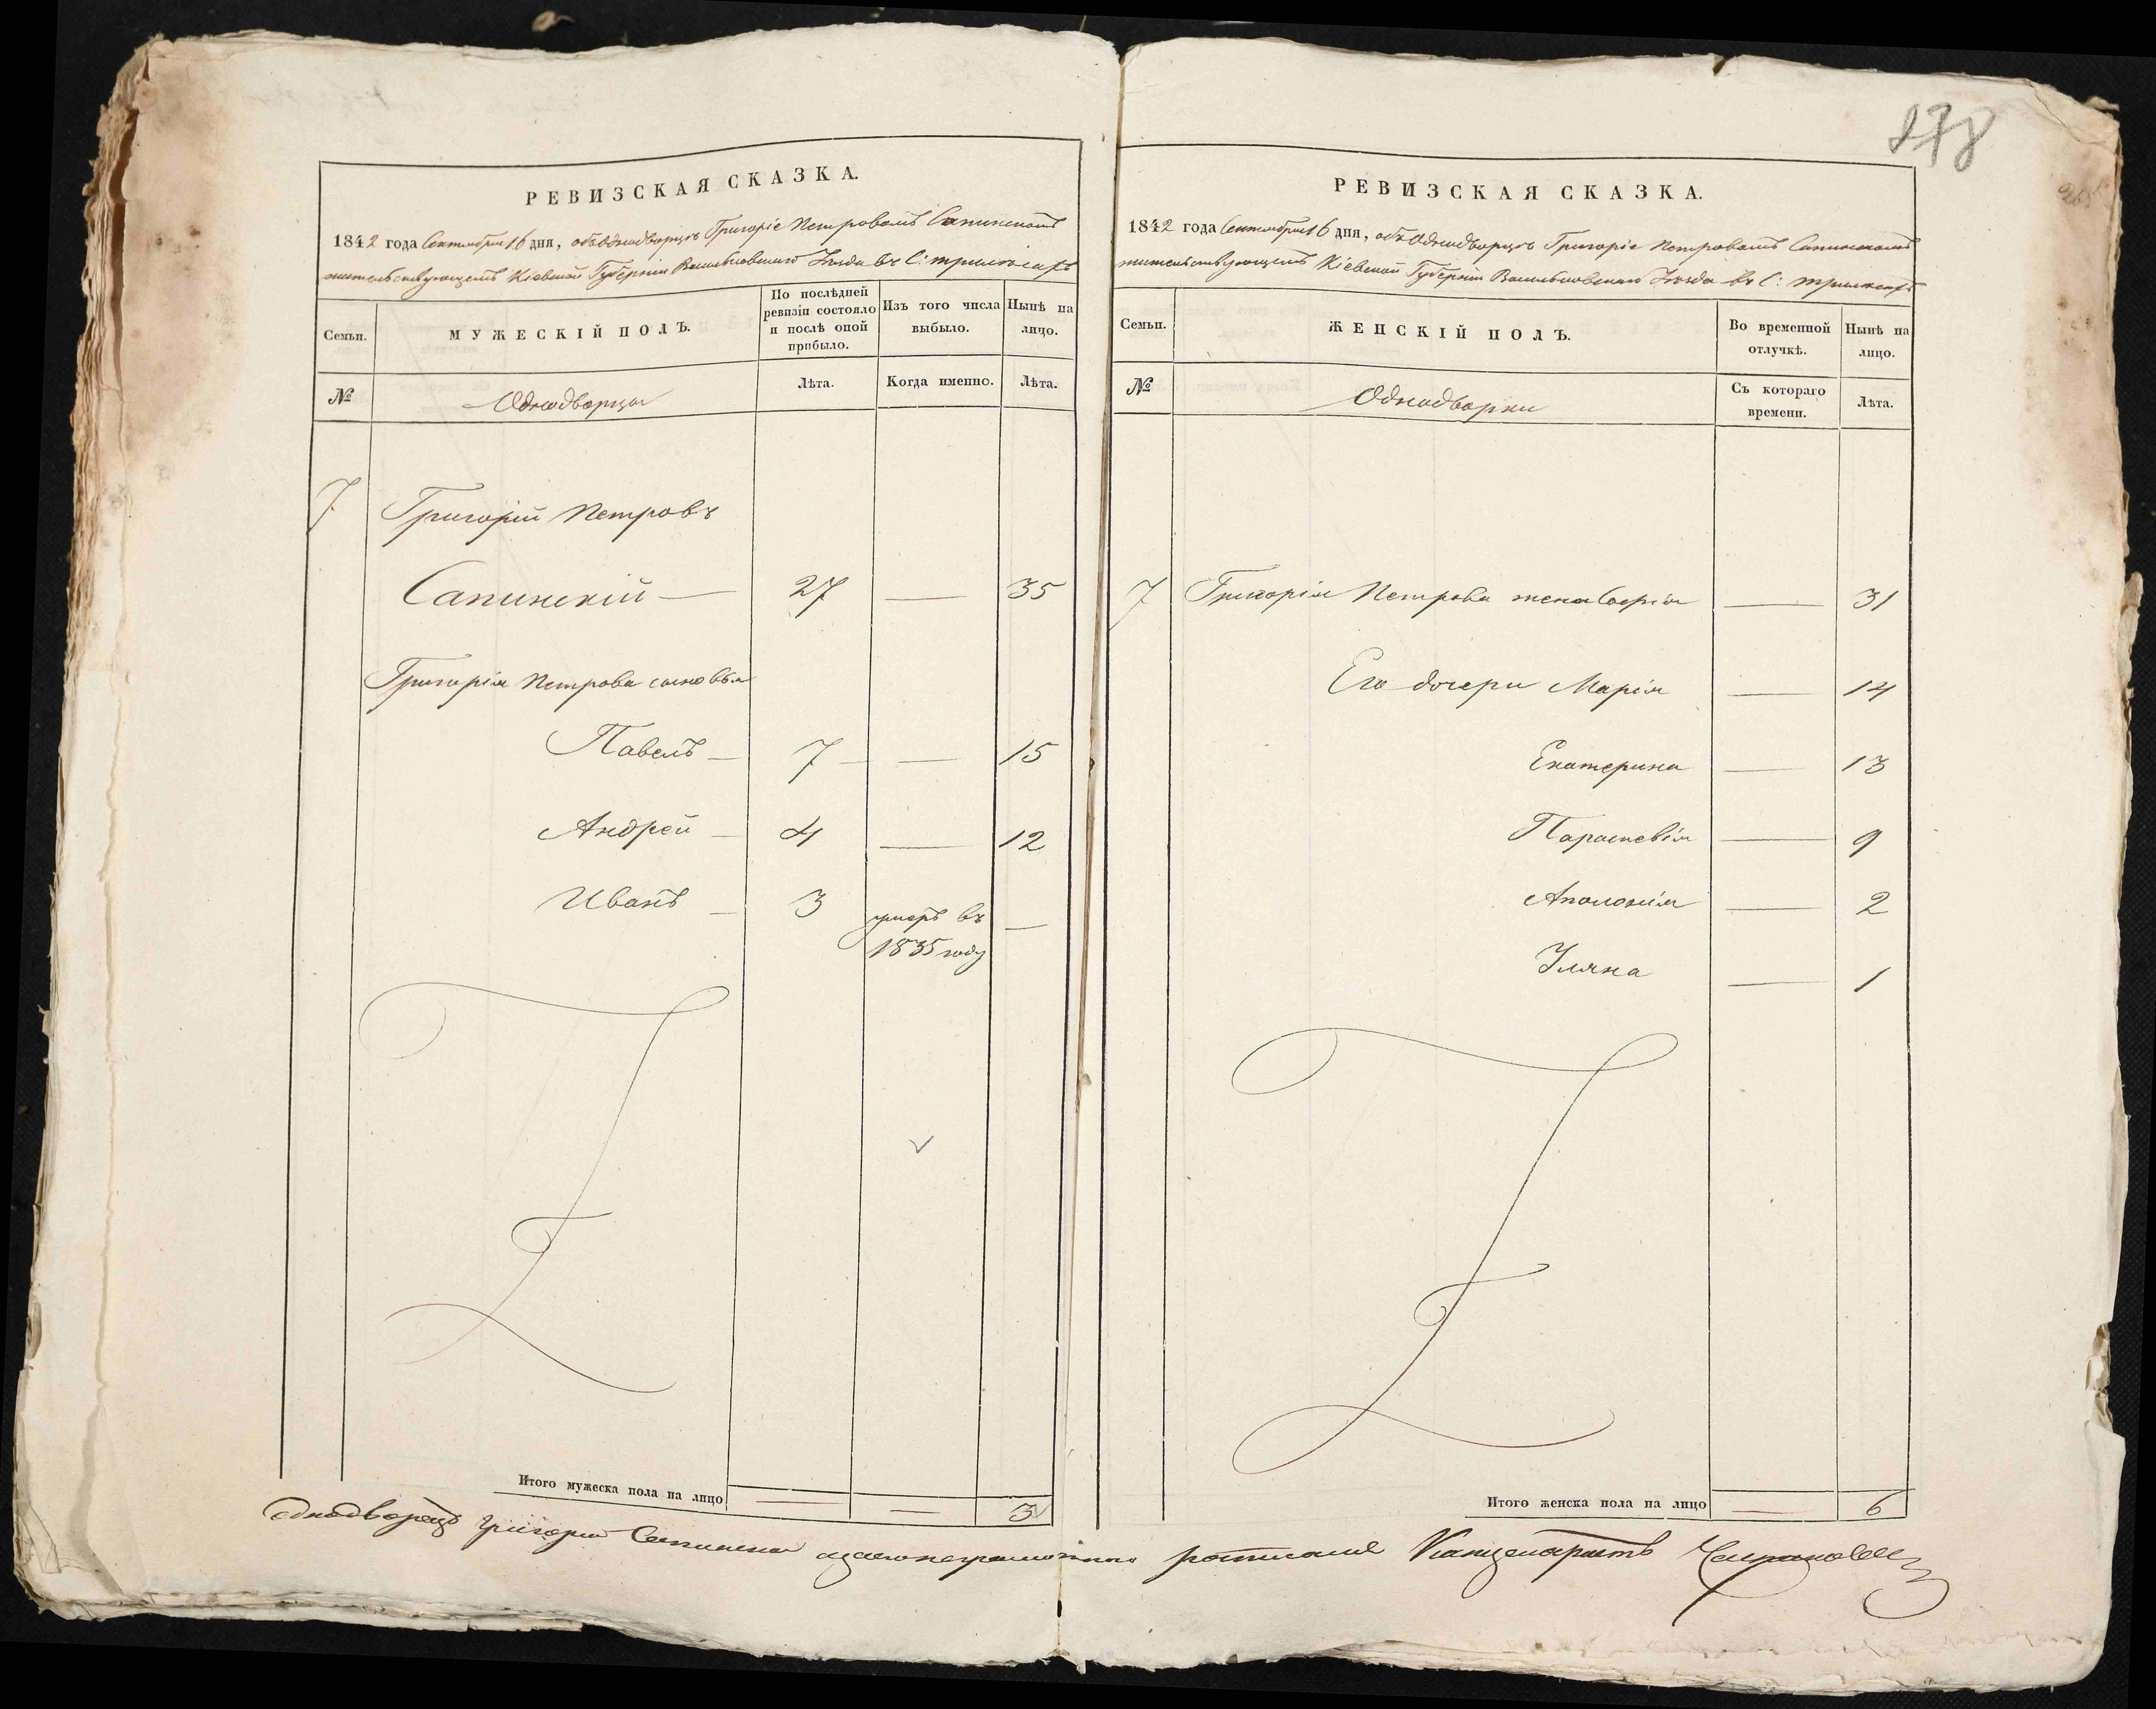 178
265
РЕВИЗСКАЯ СКАЗКА.
1842 года Сентября 16 дня, объ Однодворцѣ Григоріе Петровомъ Сапинскомъ
жительствующемъ Кіевской Губерніи Васильковскаго Уѣзда въ С: Трилѣсахъ
Семьи.
МУЖЕСКІЙ ПОЛЪ.
По послѣдней ревизіи состояло и послѣ оной прибыло.
Изъ того числа выбыло.
Нынѣ на лицо.
№
Однодворцы
Лѣта.
Когда именно.
Лѣта.
7 Григорій Петровъ
Сапинскій — 27 — 35
Григорія Петрова сыновья
Павелъ — 7 — — 15
Андрей — 4 — 12
Иванъ — 3 умеръ въ —
1835 году
Итого мужеска пола на лицо — — 3
РЕВИЗСКАЯ СКАЗКА.
1842 года Сентября 16 дня, объ Однодворцѣ Григоріе Петровомъ Сапинскомъ
жительствующемъ Кіевской Губерніи Васильковскаго Уѣзда въ С: Трилѣсахъ
Семьи.
ЖЕНСКІЙ ПОЛЪ.
Во временной отлучкѣ.
Нынѣ на лицо.
№
Однодворки
Съ котораго времени.
Лѣта.
7 Григорія Петрова жена Софія — 31
Его дочери Марія — 14
Екатерина — 13
Параскевія — 9
Аполонія — 2
Уляна — 1
Итого женска пола на лицо — 6
Однодворецъ Григорій Сапинский азанеграмотнаго росписался Канцеляристъ